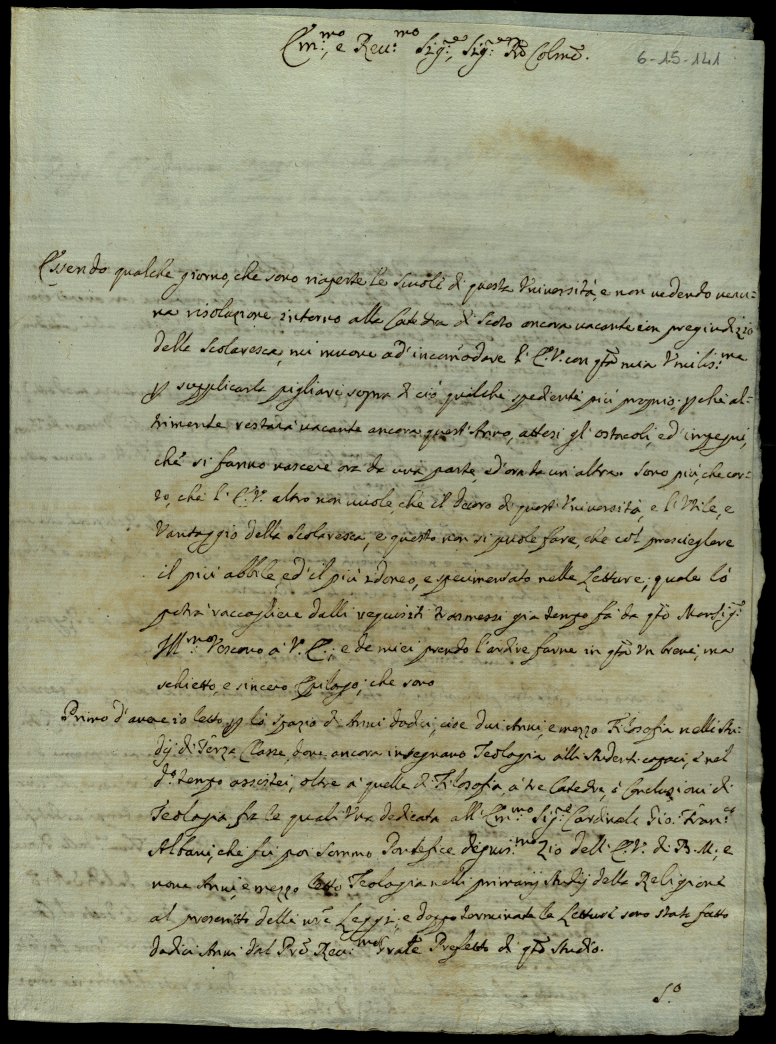 Em.mo, e Rev.mo Sig.e, Sig.e Pñe Colmõ.
6-15-141
Essendo qualche giorno, che sono riaperte le Scuole di questa Università, e non vedendo veru-
na risoluzione intorno alla Catedra di Scoto ancora vacante con pregiudizio
della Scolaresca, mi muove ad' incomodare l' E.V. con qsta mia Umiliss.ma
p supplicarla pigliare sopra di ciò qualche spediente più proprio; pche al-
trimente restarà vacante ancora quest'Anno, attesi gl' ostacoli, ed' impegni,
che si fanno nascere ora da una parte, ed' ora da un'altra. Sono più, che cer-
to, che l' E.V. altro non vuole, che il decoro di quest'Università, e l' Utile, e
Vantaggio della Scolaresca, e questo non si puole fare, che col prescieglere
il più abbile, ed' il più idoneo, e sperimentato nelle Letture; quale lo
potrà raccogliere dalli requisiti trasmessi già tempo fà da qsto Monsig.r
Ill.mo Vescovo à V. E.; e de miei prendo l'ardire farne in qsta Un breve, ma
schietto, e sincero Epilogo; che sono
Primo d'avere io letto p lo spazio di Anni dodici, cioè due Anni, e mezzo Filosofia nelli Stu-
dij di Terza Classe, dove ancora insegnano Teologia alli studenti capaci, e nel
d.o tempo assistei, oltre à quelle di Filosofia, à tre Catedre, ò Conclusioni di
Teologia, frà le quali Una dedicata all' Em.mo Sig.e Cardinale Gio: Fran.co
Albani, che fù poi Sommo Pontefice digniss.mo Zio dell' E.V. di B. M.; e
nove Anni, e mezzo letto Teologia nelli primarij Studij della Religione
al prescritto delli nre Leggi; e doppo terminate le Letture sono stato fatto
dodici Anni dal Pre Rev.mo Prale Prefetto di qsto Studio.
S.o